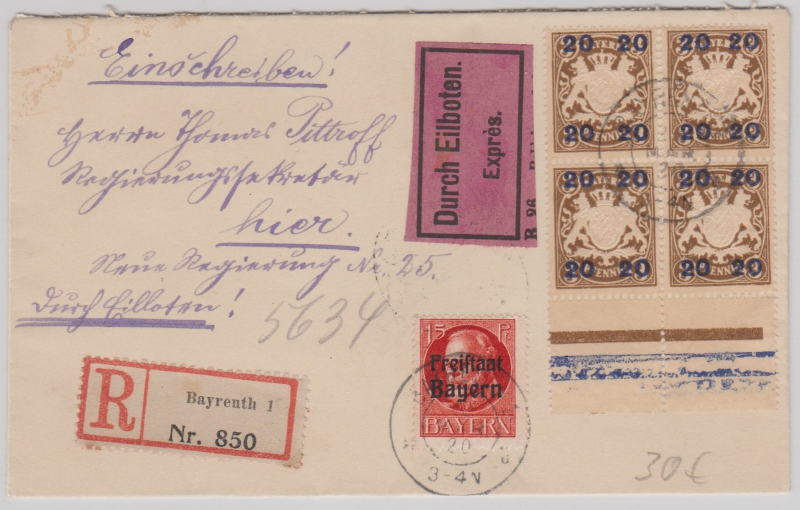 Einschreiben!
Herrn Thomas Pittroff
Regierungssekretär
hier.
Neue Regierung No. 25.
Durch Eilboten!
5634
Durch Eilboten.
Exprès.
B 26
20 20 20 20
20 20 20 20
20 20 20 20
20 20 20 20
15 Pf
Freistaat
Bayern
BAYERN
20
3-4N
R
Bayreuth 1
Nr. 850
30€